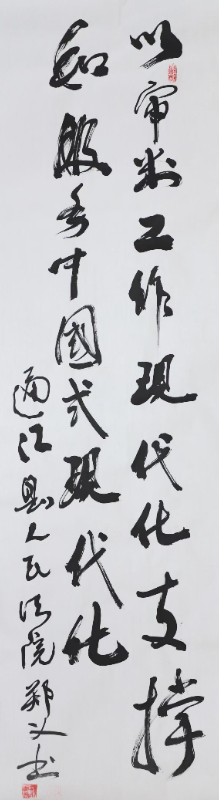 以审判工作现代化支撑
和服务中国式现代化
通江县人民法院郑义书